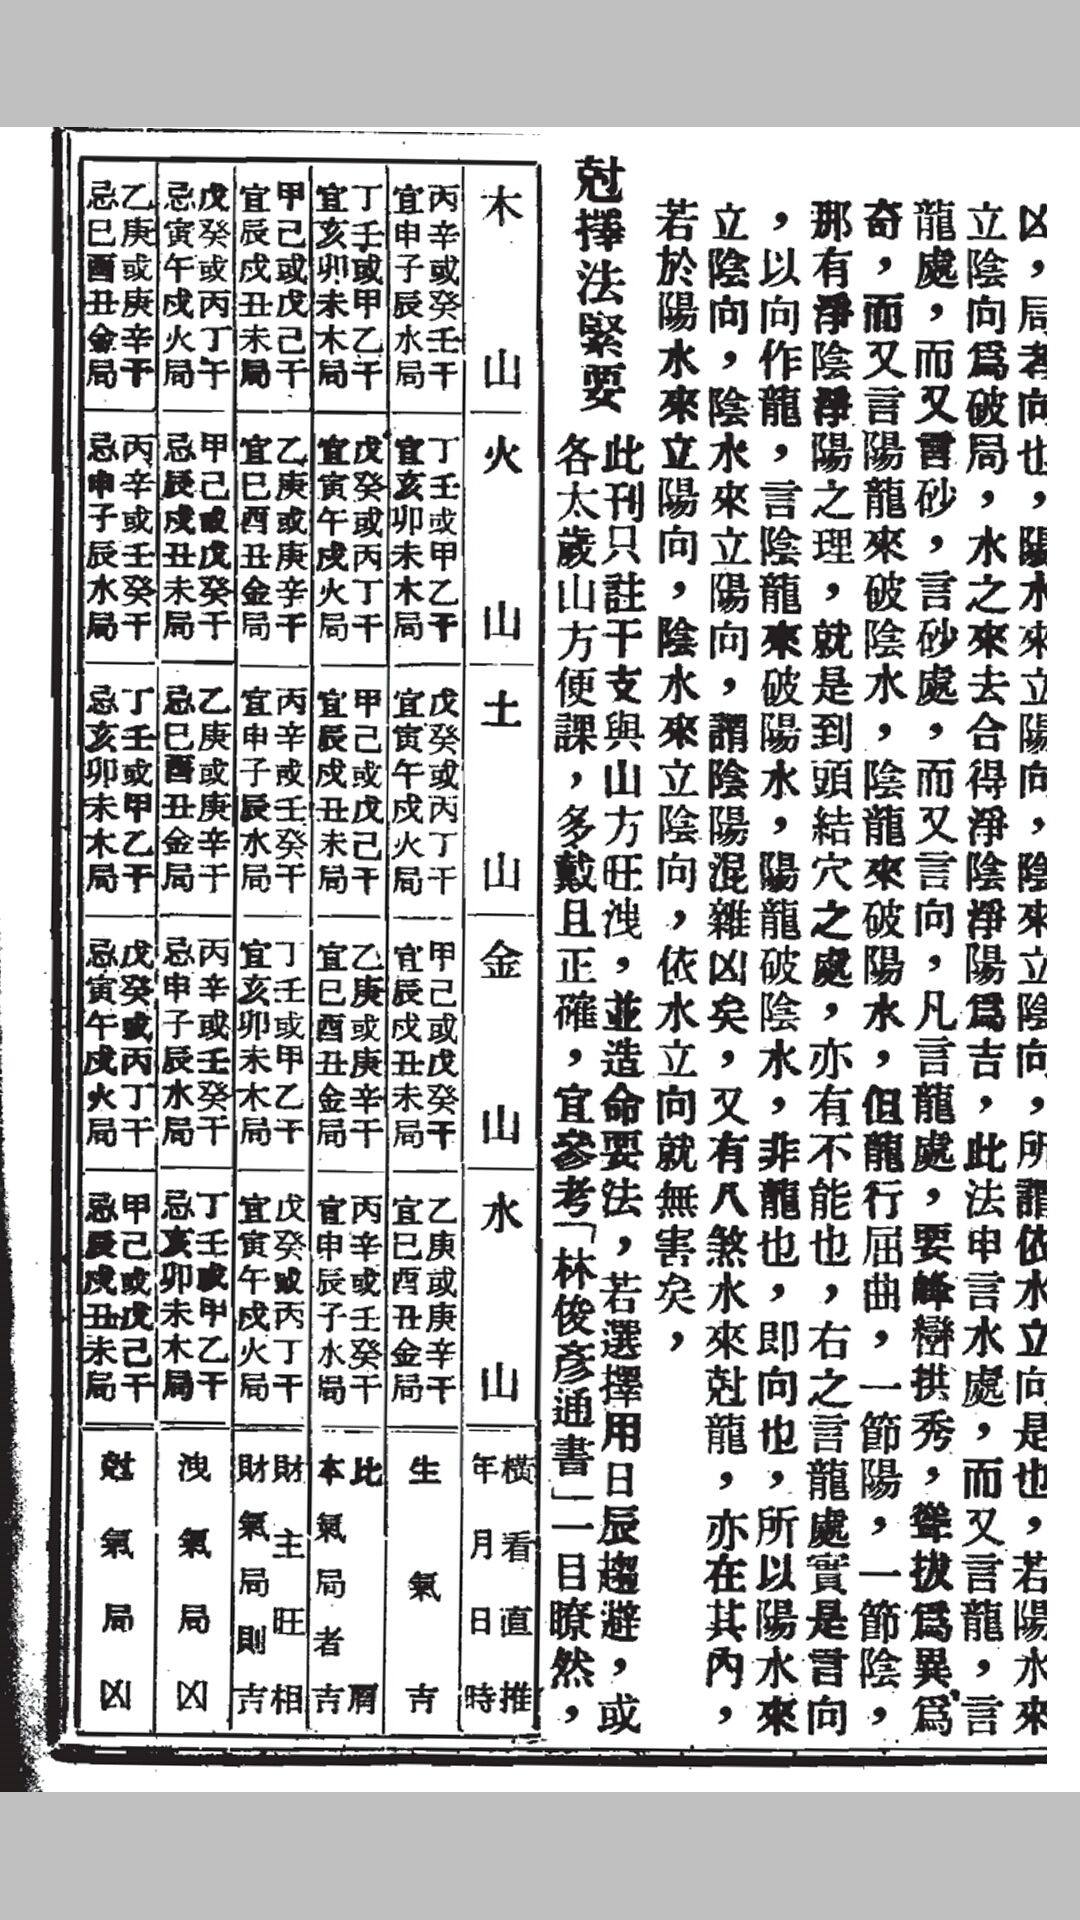 凶，局者向也，陽水來立陽向，陰來立陰向，所謂依水立向是也，若陽水來
立陰向爲破局，水之來去合得淨陰淨陽爲吉，此法申言水處，而又言龍，言
龍處，而又言砂，言砂處，而又言向，凡言龍處，要峰巒拱秀，聳拔爲異爲
奇，而又言陽龍來破陰水，陰龍來破陽水，但龍行屈曲，一節陽，一節陰，
那有淨陰淨陽之理，就是到頭結穴之處，亦有不能也，右之言龍處實是言向
，以向作龍，言陰龍來破陽水，陽龍破陰水，非龍也，即向也，所以陽水來
立陰向，陰水來立陽向，謂陰陽混雜凶矣，又有八煞水來尅龍，亦在其內，
若於陽水來立陽向，陰水來立陰向，依水立向就無害矣，
尅擇法緊要
此刊只註干支與山方旺洩，並造命要法，若選擇用日辰趨避，或
各太歲山方便課，多戴且正確，宜參考「林俊彥通書」一目瞭然，
木山
火山
土山
金山
水山
橫看直推
年月日時
丙辛或癸壬干
宜申子辰水局
丁壬或甲乙干
宜亥卯未木局
戊癸或丙丁干
宜寅午戌火局
甲己或戊癸干
宜辰戌丑未局
乙庚或庚辛干
宜巳酉丑金局
生氣吉
丁壬或甲乙干
宜亥卯未木局
戊癸或丙丁干
宜寅午戌火局
甲己或戊己干
宜辰戌丑未局
乙庚或庚辛干
宜巳酉丑金局
丙辛或壬癸干
宜申辰子水局
比屑
本氣局者吉
甲己或戊己干
宜辰戌丑未局
乙庚或庚辛干
宜巳酉丑金局
丙辛或壬癸干
宜申子辰水局
丁壬或甲乙干
宜亥卯未木局
戊癸或丙丁干
宜寅午戌火局
財主旺相
財氣局則吉
戊癸或丙丁干
忌寅午戌火局
甲己或戊癸干
忌辰戌丑未局
乙庚或庚辛干
忌巳酉丑金局
丙辛或壬癸干
忌申子辰水局
丁壬或甲乙干
忌亥卯未木局
洩氣局凶
乙庚或庚辛干
忌巳酉丑金局
丙辛或壬癸干
忌申子辰水局
丁壬或甲乙干
忌亥卯未木局
戊癸或丙丁干
忌寅午戌火局
甲己或戊己干
忌辰戌丑未局
尅氣局凶